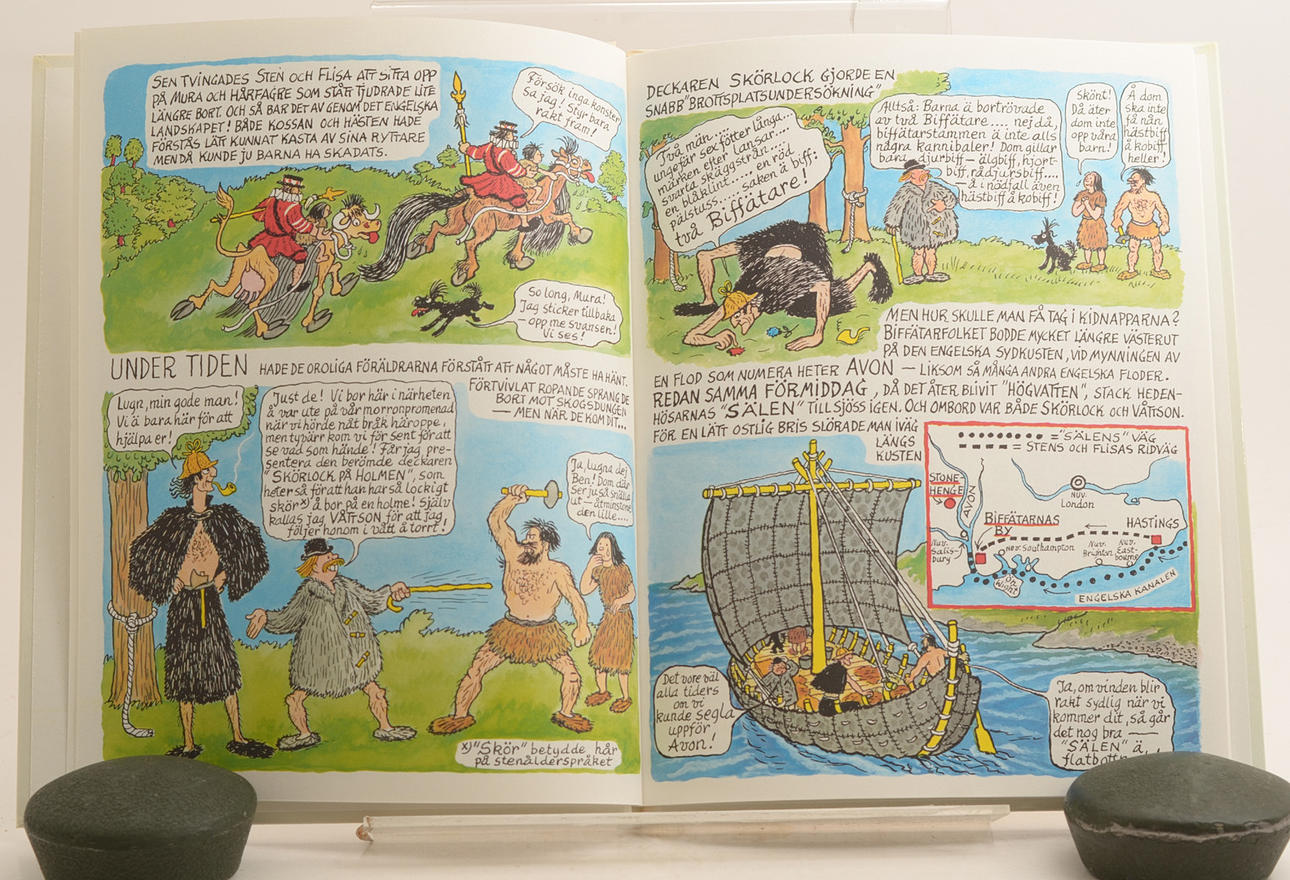 SEN TVINGADES STEN OCH FLISA ATT SITTA OPP
PÅ MURA OCH HÅRFAGRE SOM STÅTT TJUDRADE LITE
LÄNGRE BORT. OCH SÅ BAR DET AV GENOM DET ENGELSKA
LANDSKAPET! BÅDE KOSSAN OCH HÄSTEN HADE
FÖRSTÅS LÄTT KUNNAT KASTA AV SINA RYTTARE
MEN DÅ KUNDE JU BARNA HA SKADATS.
Försök inga konster
sa jag! Styr bara
rakt fram!
So long, Mura!
Jag sticker tillbaka
opp me svansen!
Vi ses!
UNDER TIDEN HADE DE OROLIGA FÖRÄLDRARNA FÖRSTÅTT ATT NÅGOT MÅSTE HA HÄNT.
FÖRTVIVLAT ROPANDE SPRANG DE
BORT MOT SKOGSDUNGEN
— MEN NÄR DE KOM DIT...
Lugn, min gode man!
Vi ä bara här för att
hjälpa er!
Just de! Vi bor här i närheten
å var ute på vår morronpromenad
när vi hörde nåt bråk häroppe,
men tyvärr kom vi för sent för att
se vad som hände! Får jag pre-
sentera den berömde deckaren
"SKÖRLOCK PÅ HOLMEN", som
heter så för att han har så lockigt
skör x) å bor på en holme! Själv
kallas jag VÅTTSON för att jag
följer honom i vått å torrt!
Ja, lugna dej
Ben! Dom där
ser ju så snälla
ut — åtminstone
den lille....
x) "Skör" betydde hår
på stenålderspråket
DECKAREN SKÖRLOCK GJORDE EN
SNABB "BROTTSPLATSUNDERSÖKNING"
Två män....
ungefär sex fötter långa..
märken efter lansar....
svarta skäggstrån.... en röd
en blåklint..... en röd
pälstuss.... saken ä biff:
två Biffätare!
Alltså: Barna ä bortrövade
av två Biffätare.... nej då,
biffätarstammen ä inte alls
några kannibaler! Dom gillar
bara djurbiff — älgbiff, hjort-
biff, rådjursbiff....
— å i nödfall även
hästbiff å kobiff!
Skönt!
Då äter
dom inte
opp våra
barn!
Å dom
ska inte
få nån
hästbiff
å kobiff
heller!
MEN HUR SKULLE MAN FÅ TAG I KIDNAPPARNA?
BIFFÄTARFOLKET BODDE MYCKET LÄNGRE VÄSTERUT
PÅ DEN ENGELSKA SYDKUSTEN, VID MYNNINGEN AV
EN FLOD SOM NUMERA HETER AVON — LIKSOM SÅ MÅNGA ANDRA ENGELSKA FLODER.
REDAN SAMMA FÖRMIDDAG, DÅ DET ÅTER BLIVIT "HÖGVATTEN", STACK HEDEN-
HÖSARNAS "SÄLEN" TILL SJÖSS IGEN. OCH OMBORD VAR BÅDE SKÖRLOCK OCH VÅTTSON.
FÖR EN LÄTT OSTLIG BRIS SLÖRADE MAN IVÄG
LÄNGS
KUSTEN
= "SÄLENS" VÄG
= STENS OCH FLISAS RIDVÄG
STONE
HENGE
AVON
NUV.
London
BIFFÄTARNAS
BY
HASTINGS
Nuv.
Salis-
bury
Nuv. Southampton
Nuv.
Brighton
Nuv.
East-
bourne
Ön
Wight
ENGELSKA KANALEN
Det vore väl
alla tiders
om vi
kunde segla
uppför
Avon!
Ja, om vinden blir
rakt sydlig när vi
kommer dit, så går
det nog bra —
"SÄLEN" ä